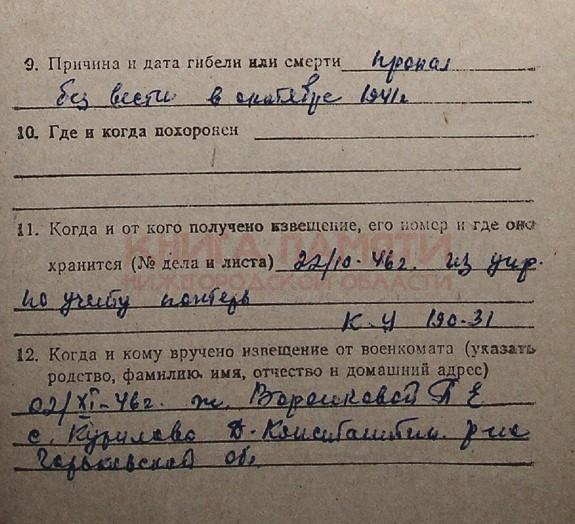 9. Причина и дата гибели или смерти пропал
без вести в октябре 1941г
10. Где и когда похоронен
11. Когда и от кого получено извещение, его номер и где оно
КНИГА ПАМЯТИ
хранится (№ дела и листа) 22/10-46г. из упр.
НИЖЕГОРОДСКОЙ ОБЛАСТИ
по учету потерь
К-У 190-31
12. Когда и кому вручено извещение от военкомата (указать
родство, фамилию, имя, отчество и домашний адрес)
02/XI-46г. ж. Воронковой П Е
с. Курилово Д-Константин. р-на
Горьковской об.